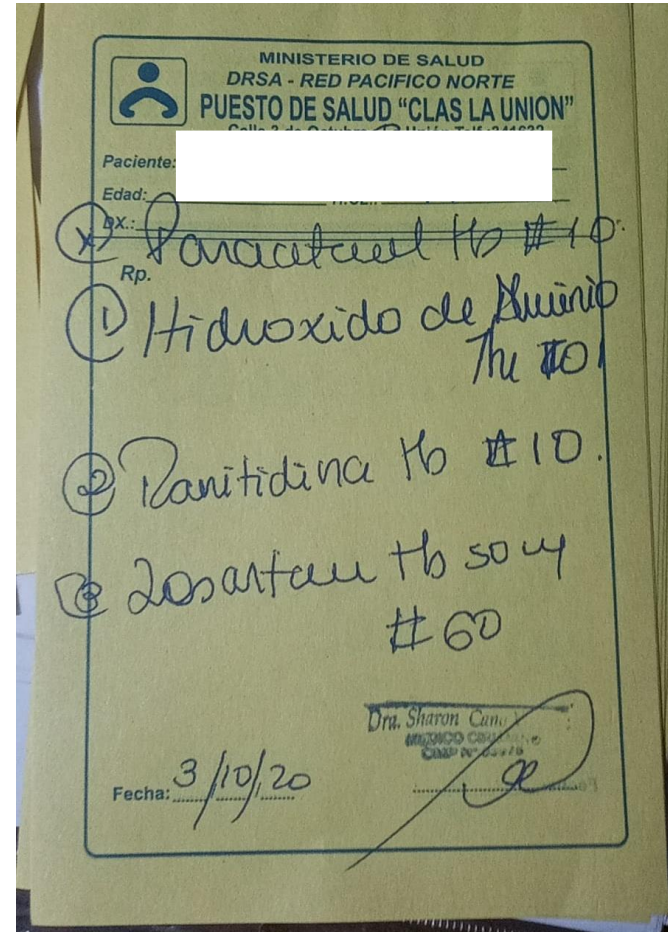 MINISTERIO DE SALUD
DRSA - RED PACIFICO NORTE
PUESTO DE SALUD "CLAS LA UNION"
Paciente:
Edad:
DX.:
x Paracetamol tb #10.
Rp.
1 Hidroxido de Aluminio
#01
2 Ranitidina tb #10.
3 Losartan tb 50
#60
Dra. Sharon
MEDICO CIRUJANO
CMP N°
Fecha: 3/10/20